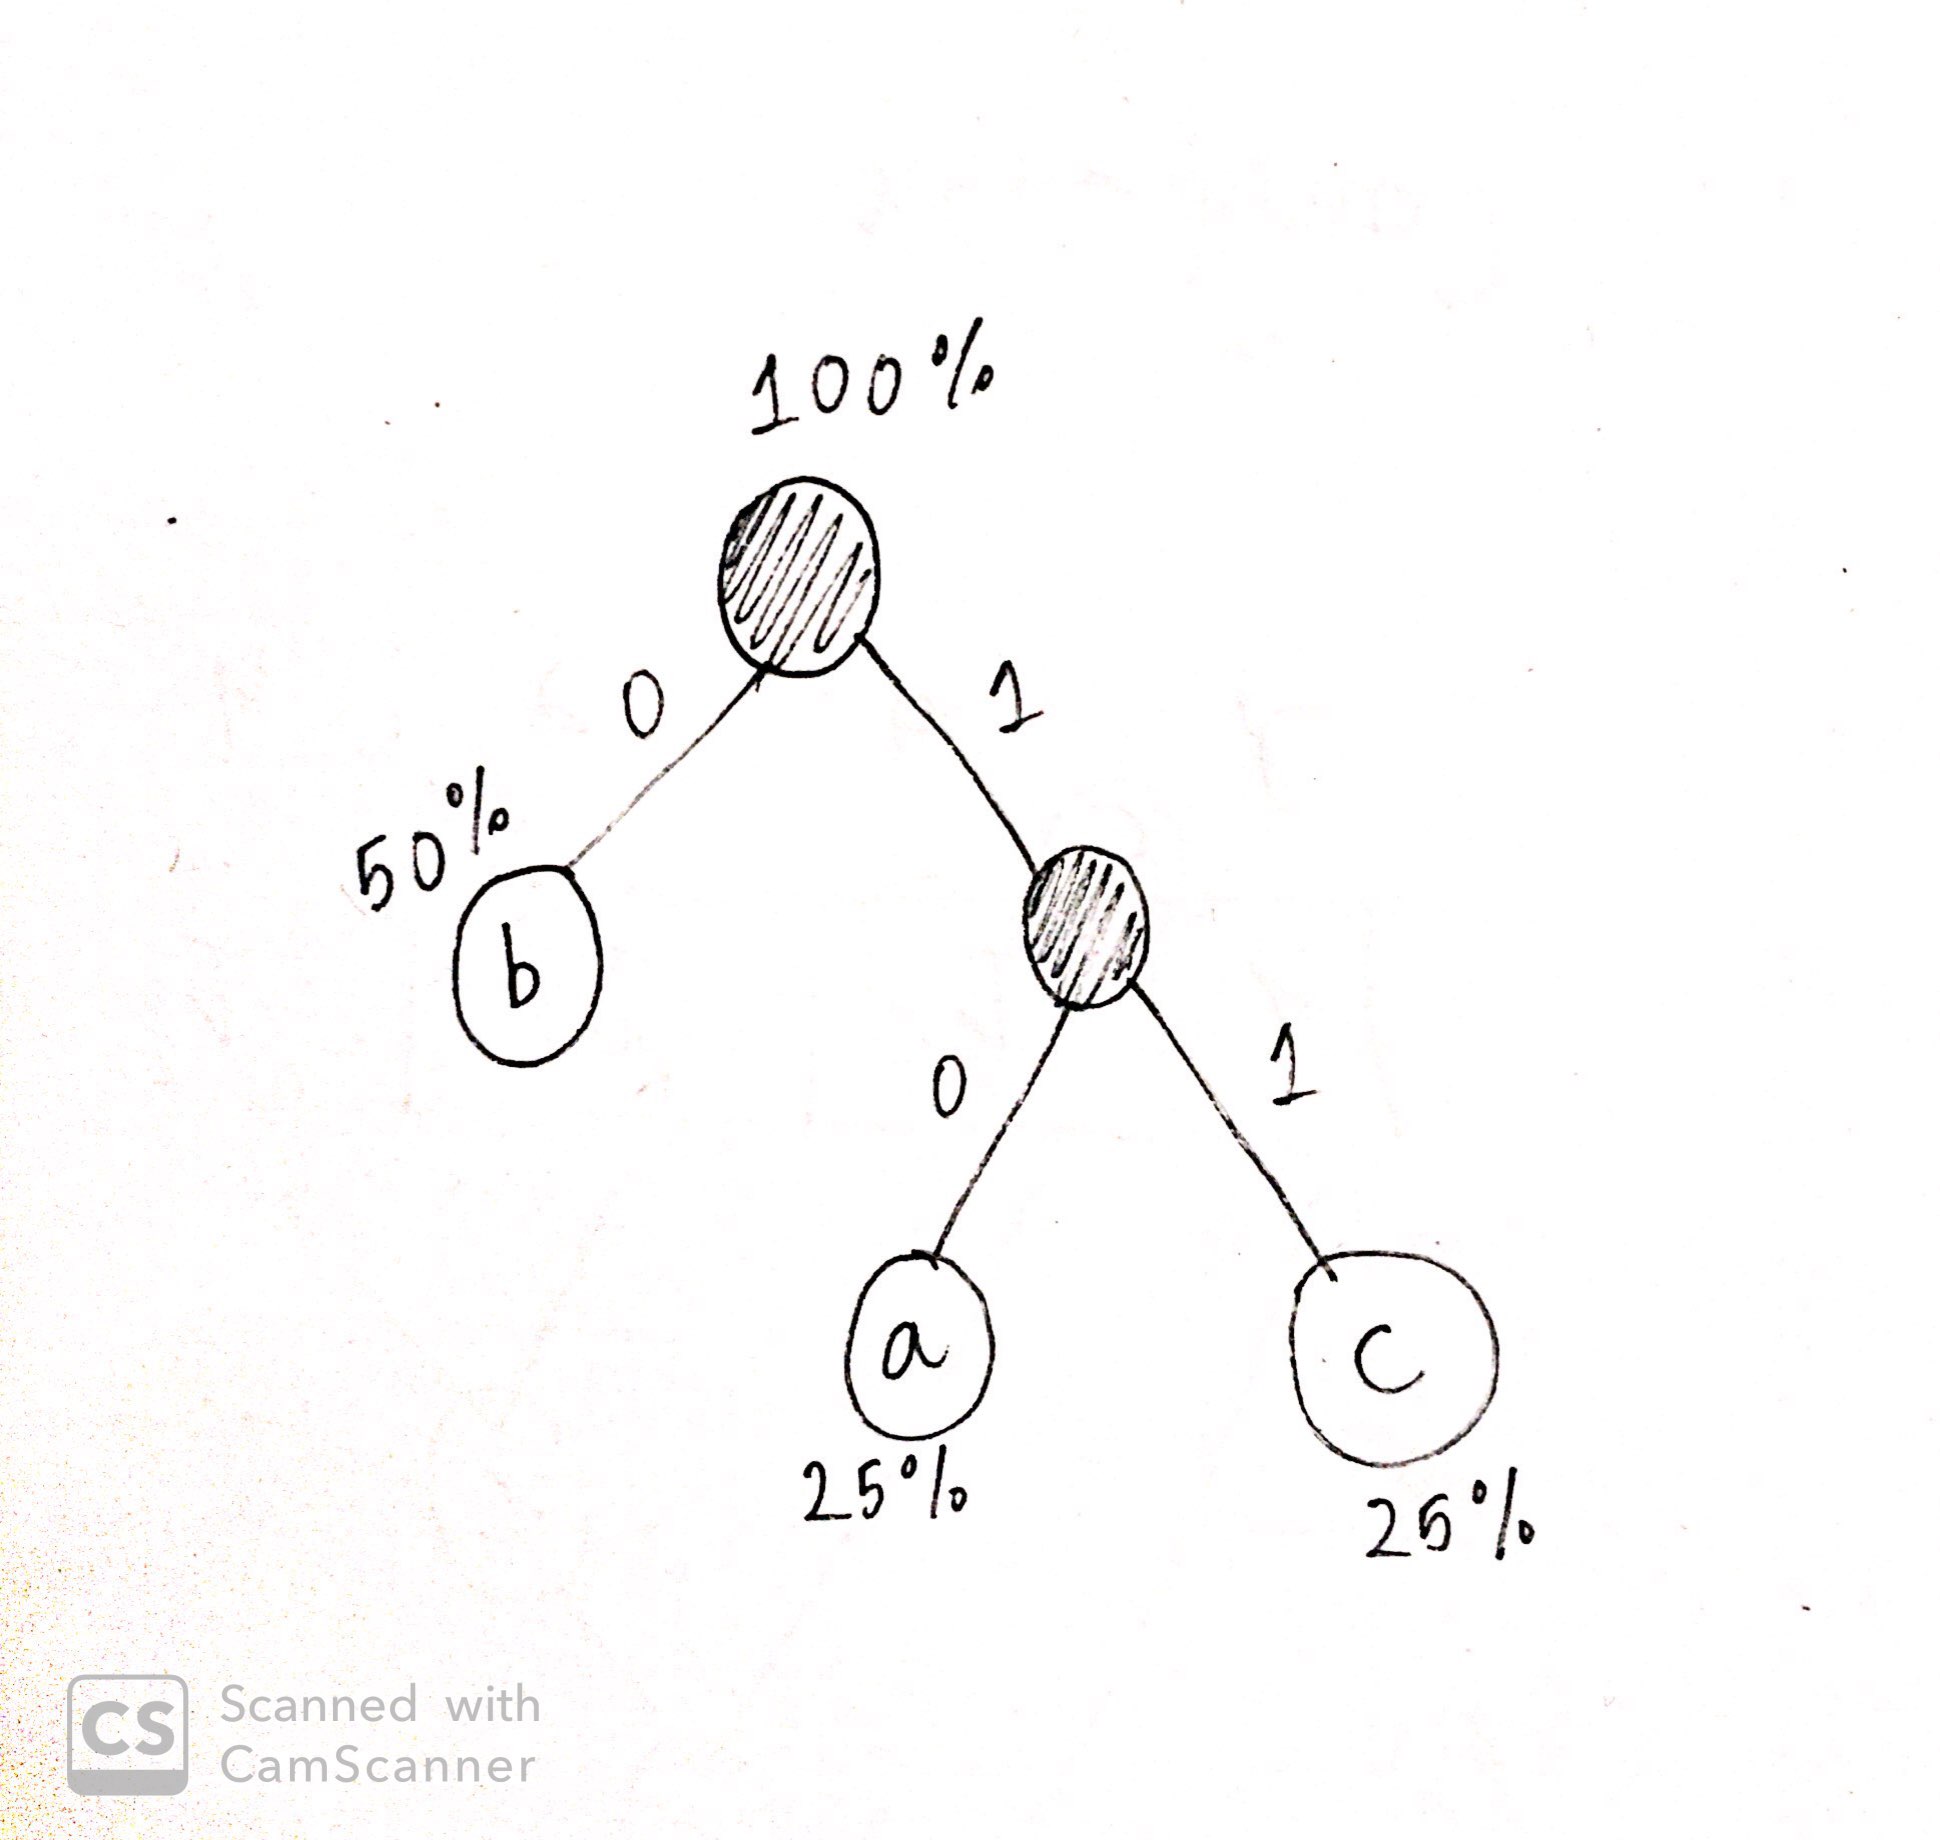 100%
0
1
50%
b
0
1
a
c
25%
25%
CS
Scanned with
CamScanner